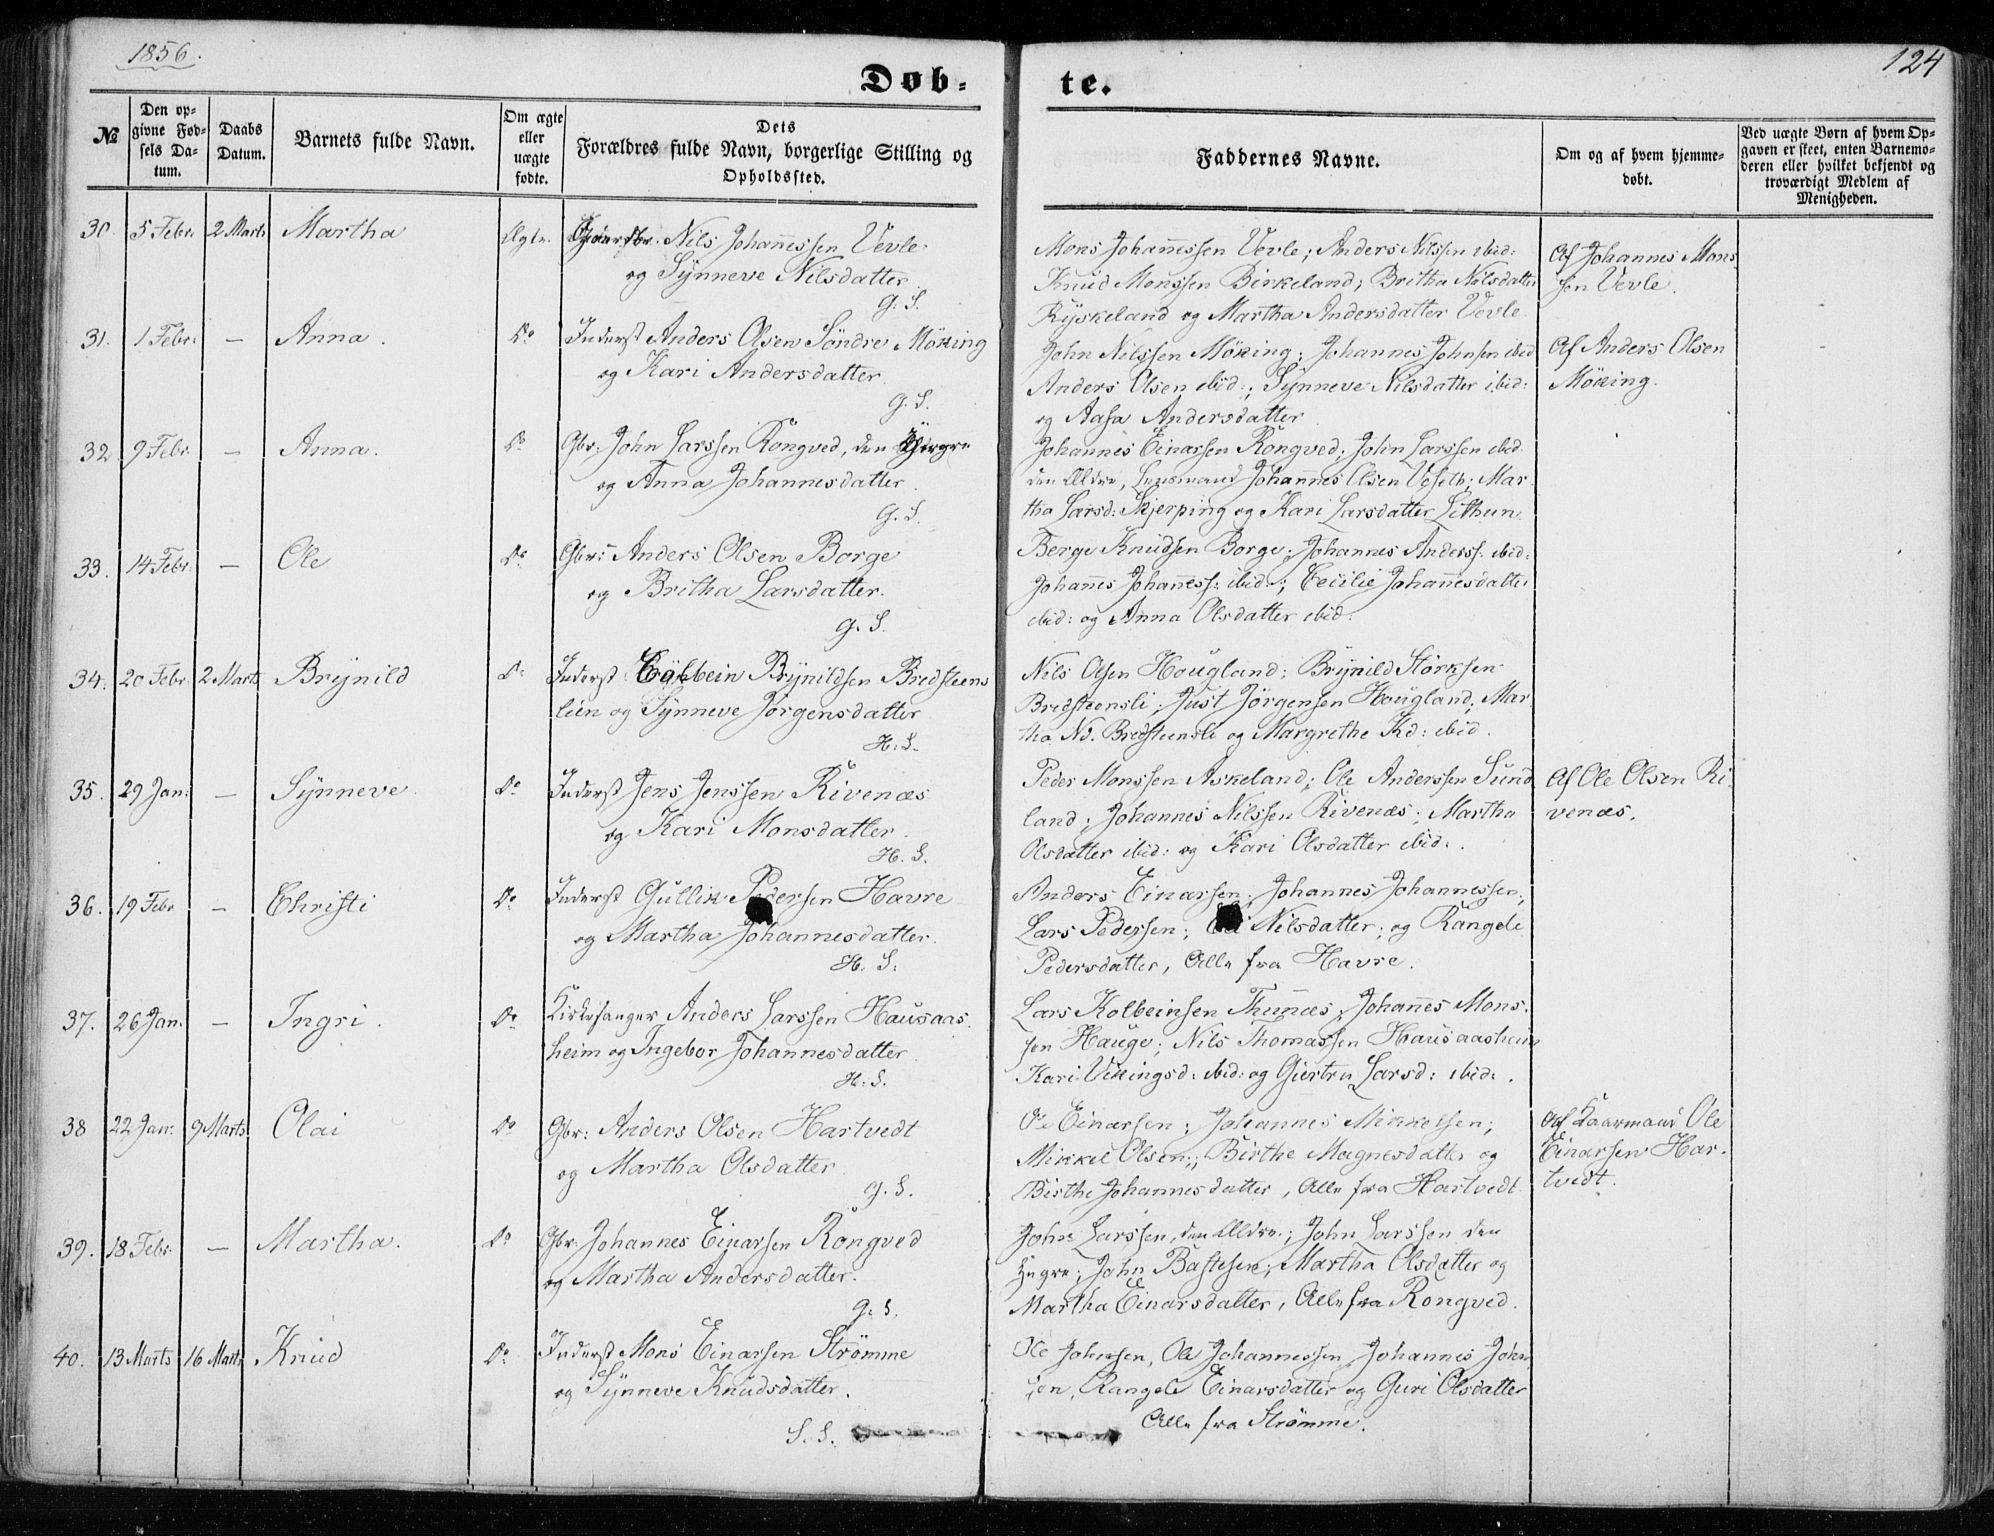 1856.
124
Døb-
te.
№
Den op-
givne Fød-
sels Da-
tum.
Daabs
Datum.
Barnets fulde Navn.
Om ægte
eller
uægte
fødte.
Dets
Forældres fulde Navn, borgerlige Stilling og
Opholdssted.
Faddernes Navne.
Om og af hvem hjemme-
døbt.
Ved uægte Børn af hvem Op-
gaven er skeet, enten Barnemo-
deren eller hvilket bekjendt og
troværdigt Medlem af
Menigheden.
30. 5 Febr. 2 Marts Martha Ægte. Nils Johannessen Vevle
og Synneve Nilsdatter
G. S.
Mons Johannessen Vevle; Anders Nilssen ibid:
Knud Monssen Birkeland; Britha Nilsdatter
Ryskeland og Martha Andersdatter Vevle
Af Johannes Mons-
sen Vevle.
31. 1 Febr. — Anna. Do Inderst Anders Olsen Søndre Møking
og Kari Andersdatter
G. S.
John Nilssen Møking; Johannes Johnsen ibid
Anders Olsen ibid:; Synneve Nilsdatter ibid:
og Aasa Andersdatter
Af Anders Olsen
Møking.
32. 9 Febr. — Anna. Do Gbr: John Larssen Rongved, den Yngre
og Anna Johannesdatter.
G. S.
Johannes Einarsen Rongved; John Larssen ibid
den Ældre, Lensmand Johannes Olsen Veseth; Mar-
tha Larsd: Skjerping og Kari Larsdatter Lethun
33. 14 Febr. — Ole Do Gbr: Anders Olsen Borge
og Britha Larsdatter.
G. S.
Berge Knudsen Borge; Johannes Anderss: ibid:
Johannes Johanness: ibid:; Cecilie Johannesdatter
ibid: og Anna Olsdatter ibid:
34. 20 Febr 2 Marts Brynild Do Inderst Colbein Brynildsen Bredsteens
lien og Synneve Jørgensdatter
H. S.
Nils Olsen Hougland; Brynild Størksen
Bredsteensli; Just Jørgensen Hougland; Mar-
tha Nd. Bredsteensli og Margrethe Kd: ibid.
35. 29 Jan: — Synneve. Do Inderst Jens Jenssen Rivenæs
og Kari Monsdatter.
H. S.
Peder Monssen Askeland; Ole Anderssen Sund-
land; Johannes Nilssen Rivenæs; Martha
Olsdatter ibid: og Kari Olsdatter ibid:.
Af Ole Olsen Ri-
venæs.
36. 19 Febr — Christi Do Inderst Gullik Pedersen Havre
og Martha Johannesdatter.
H. S.
Anders Einarsen; Johannes Johannessen;
Lars Pedersen; Nilsdatter; og Rangele
Pedersdatter, Alle fra Havre.
37. 26 Jan. — Ingri. Do Kirkesanger Anders Larssen Hausaas-
heim og Ingebor Johannesdatter.
H. S.
Lars Kolbeinsen Thunæs; Johannes Mons-
sen Hauge; Nils Thomassen Hausaasheim
Kari Vikingsd: ibid: og Giertru Larsd: ibid:.
38 22 Jan: 9 Marts Olai Do Gbr: Anders Olsen Hartvedt
og Martha Olsdatter.
G. S.
Ole Einarsen; Johannes Mikkelsen;
Mikkel Olsen; Birthe Magnesdatter og
Birthe Johannesdatter, Alle fra Hartvedt
Af Kaarmand Ole
Einarsen Har-
tvedt.
39. 18 Febr. — Martha. Do Gbr: Johannes Einarsen Rongved
og Martha Andersdatter.
G. S.
John Larssen, den Ældre; John Larssen den
Yngre; John Bastesen; Martha Olsdatter og
Martha Einarsdatter, Alle fra Rongved.
40. 13 Marts 16 Marts Knud Do Inderst Mons Einarsen Strømme
og Synneve Knudsdatter.
S. S.
Ole Johnsen, Ole Johannessen, Johannes John-
sen, Rangele Einarsdatter og Guri Olsdatter
Alle fra Strømme.